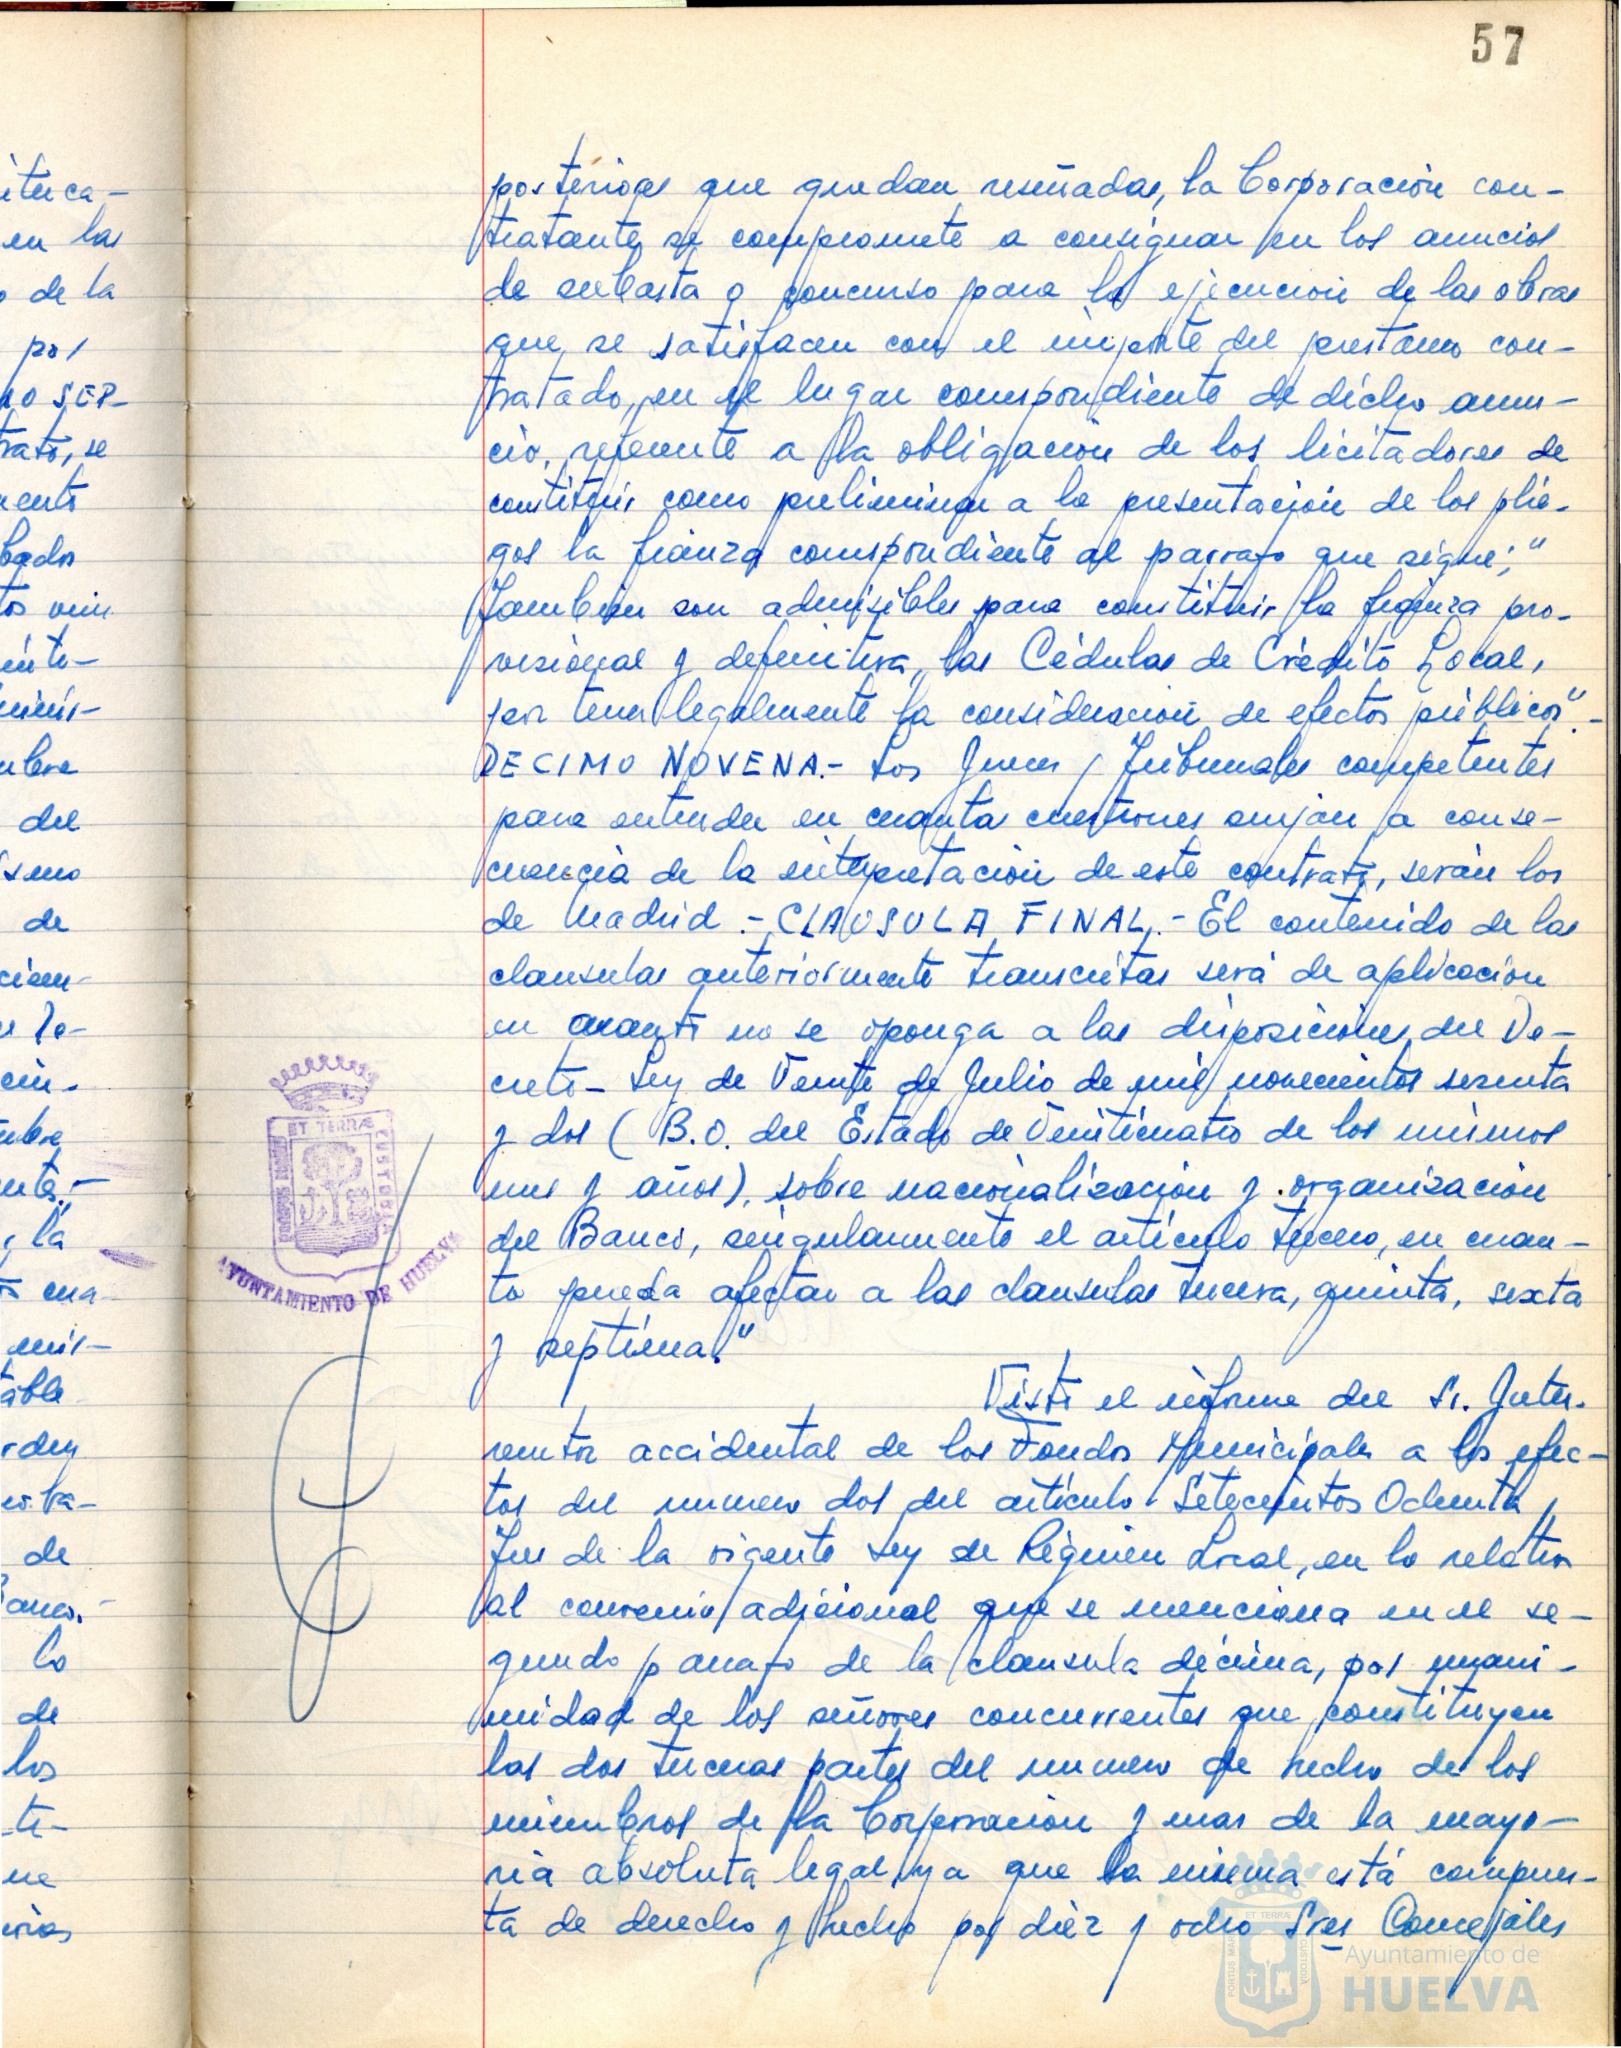 57
posteriores que quedan reseñadas, la Corporación con-
tratante se compromete a consignar en los anuncios
de subasta o concurso para la ejecución de las obras
que se satisfacen con el importe del prestamo con-
tratado, en el lugar correspondiente de dicho anun-
cio, referente a la obligación de los licitadores de
constituir como preliminar a la presentación de los plie-
gos la fianza correspondiente al parrafo que sigue; "
Tambien son admisibles para constituir la fianza pro-
visional y definitiva, las Cédulas de Crédito Local,
por tener legalmente la consideración de efectos públicos".-
DECIMO NOVENA.- Los Jueces y Tribunales competentes
para entender en cuantas cuestiones surjan a conse-
cuencia de la interpretación de este contrato, serán los
de Madrid.- CLAUSULA FINAL.- El contenido de las
clausulas anteriormente transcritas será de aplicación
en cuanto no se oponga a las disposiciones del De-
creto-Ley de Veinte de Julio de mil novecientos sesenta
y dos (B.O. del Estado de Veinticuatro de los mismos
mes y años), sobre nacionalización y organización
del Banco, singularmente el artículo tercero, en cuan-
to pueda afectar a las clausulas tercera, quinta, sexta
y septima."
Visto el informe del Sr. Inter-
ventor accidental de los Fondos Municipales a los efec-
tos del numero dos del artículo Setecientos Ochenta y
Tres de la vigente Ley de Régimen Local, en lo relativo
al convenio adicional que se menciona en el se-
gundo parrafo de la clausula décima, por unani-
midad de los señores concurrentes que constituyen
las dos terceras partes del numero de hecho de los
miembros de la Corporación y mas de la mayo-
ria absoluta legal, ya que la misma está compues-
ta de derecho y hecho por diez y ocho Sres Concejales
ET TERRÆ
CUSTODIA
AYUNTAMIENTO DE HUELVA
itúca-
en las
o de la
por
NO SEP-
rato, se
del
de
la
de
lo
de
los
PORTUS MARIS
ET TERRÆ
CUSTODIA
Ayuntamiento de
HUELVA